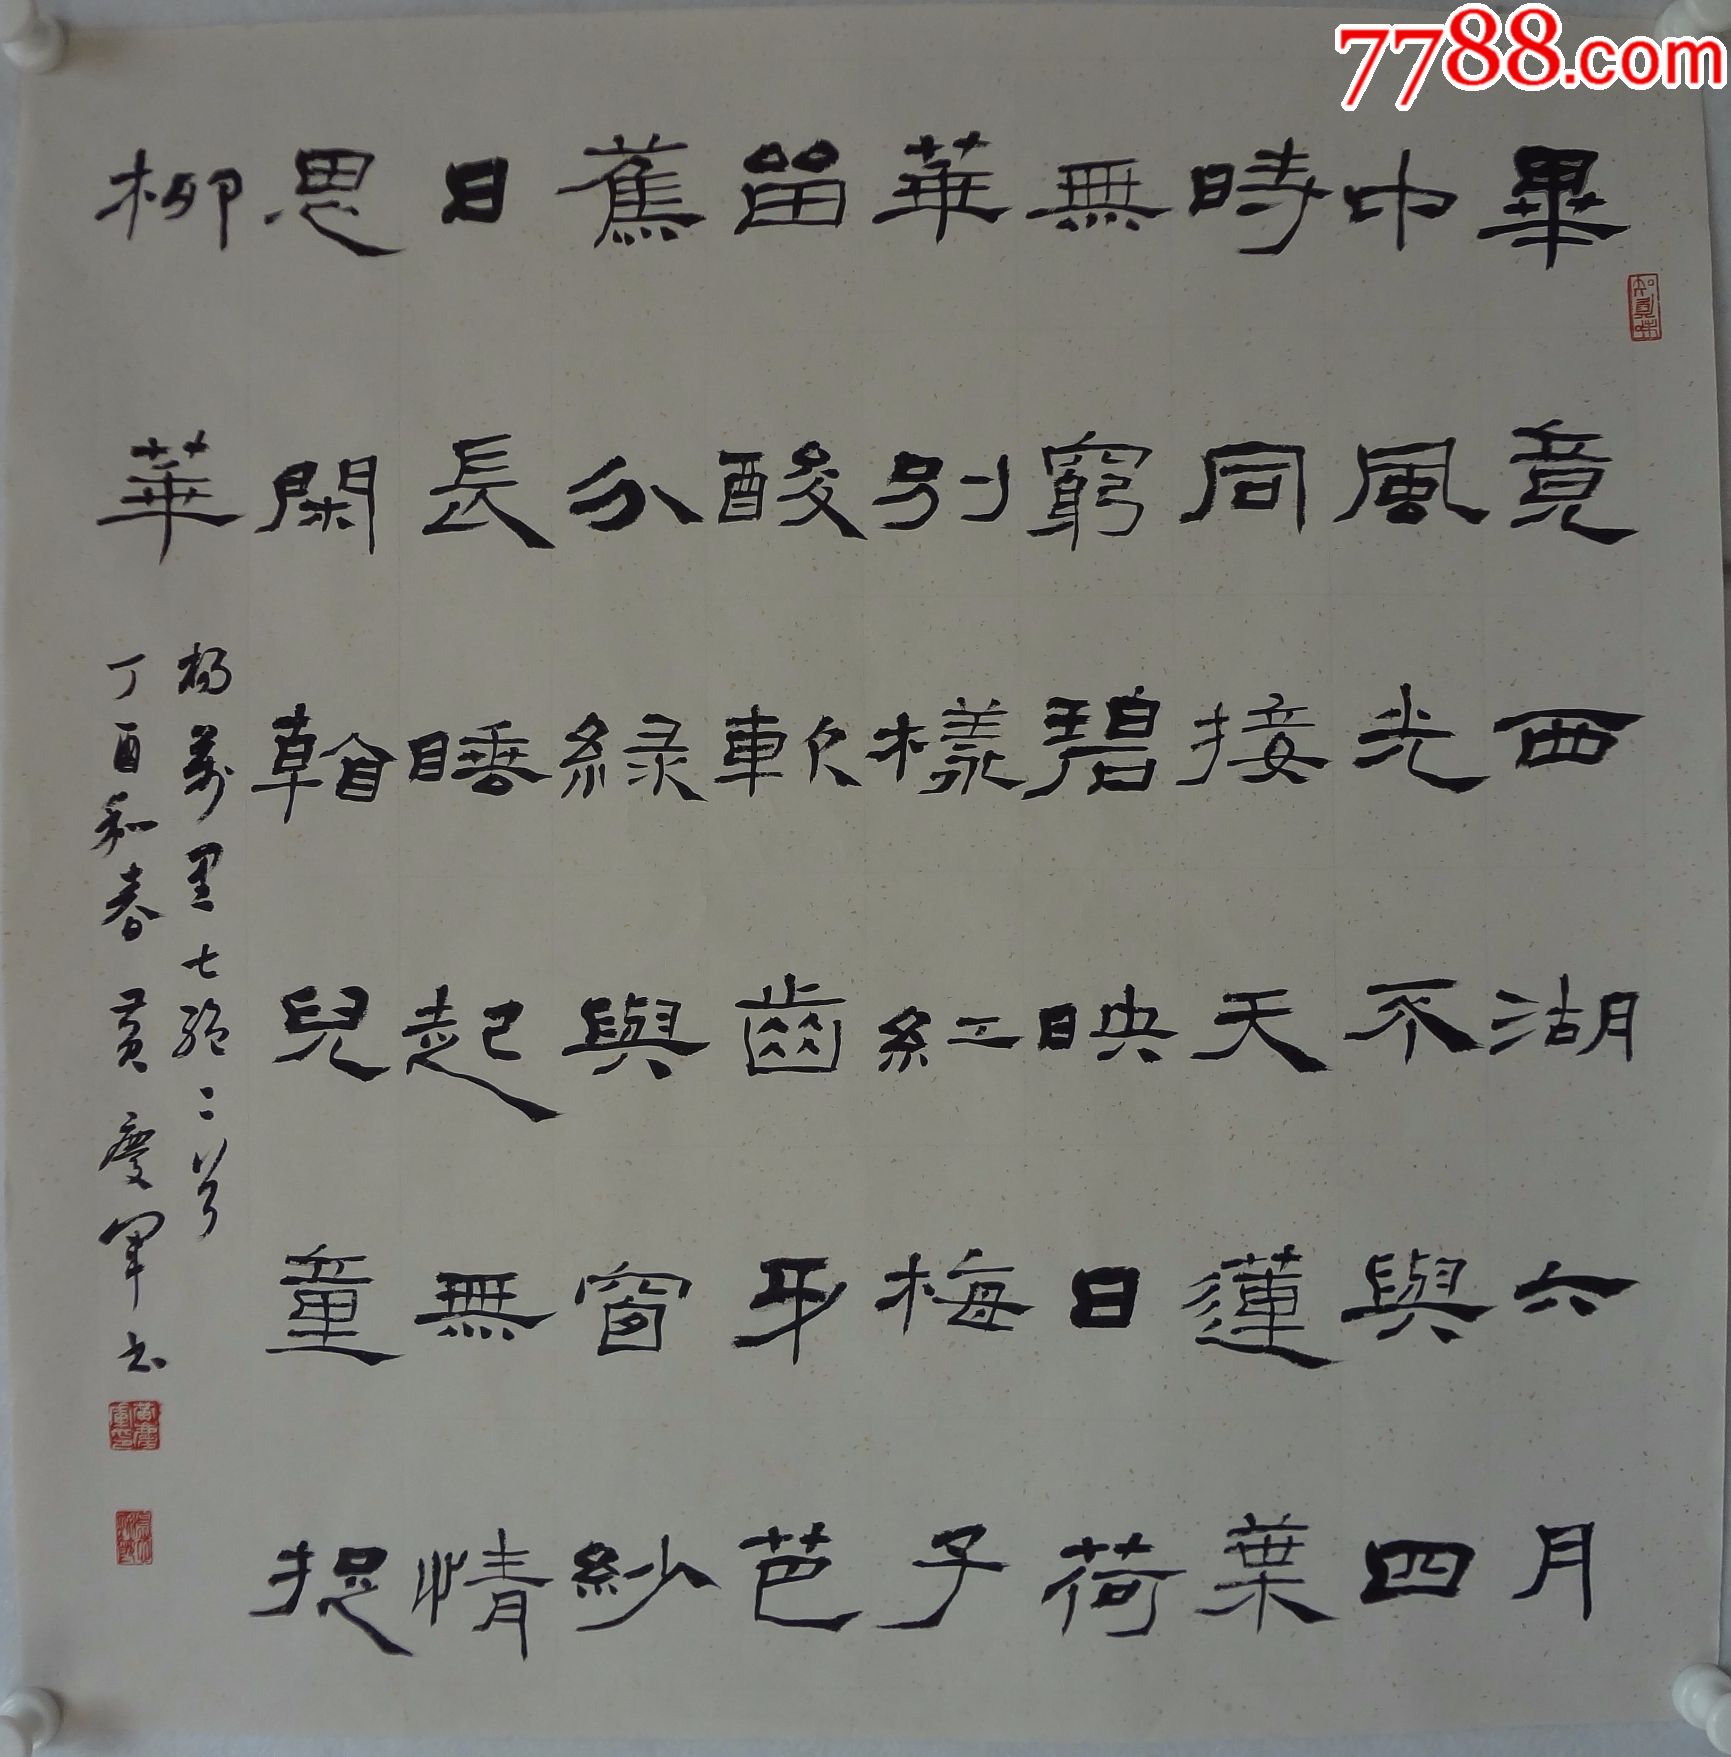 畢竟西湖六月
中風光不與四
時同接天蓮葉
無窮碧映日荷
華別樣紅梅子
留酸軟齒牙芭
蕉分緑與窗紗
日長睡起無情
思閑看兒童捉
柳華
杨萬里七絕二首
丁酉和春黄慶軍书
7788.com